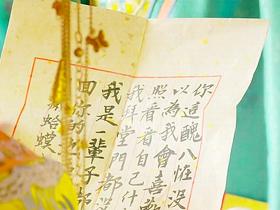 你這醜八怪没
以為我會喜歡
照看看自己什
我拜堂門都没
我是一輩子都
回你的
癩蛤蟆